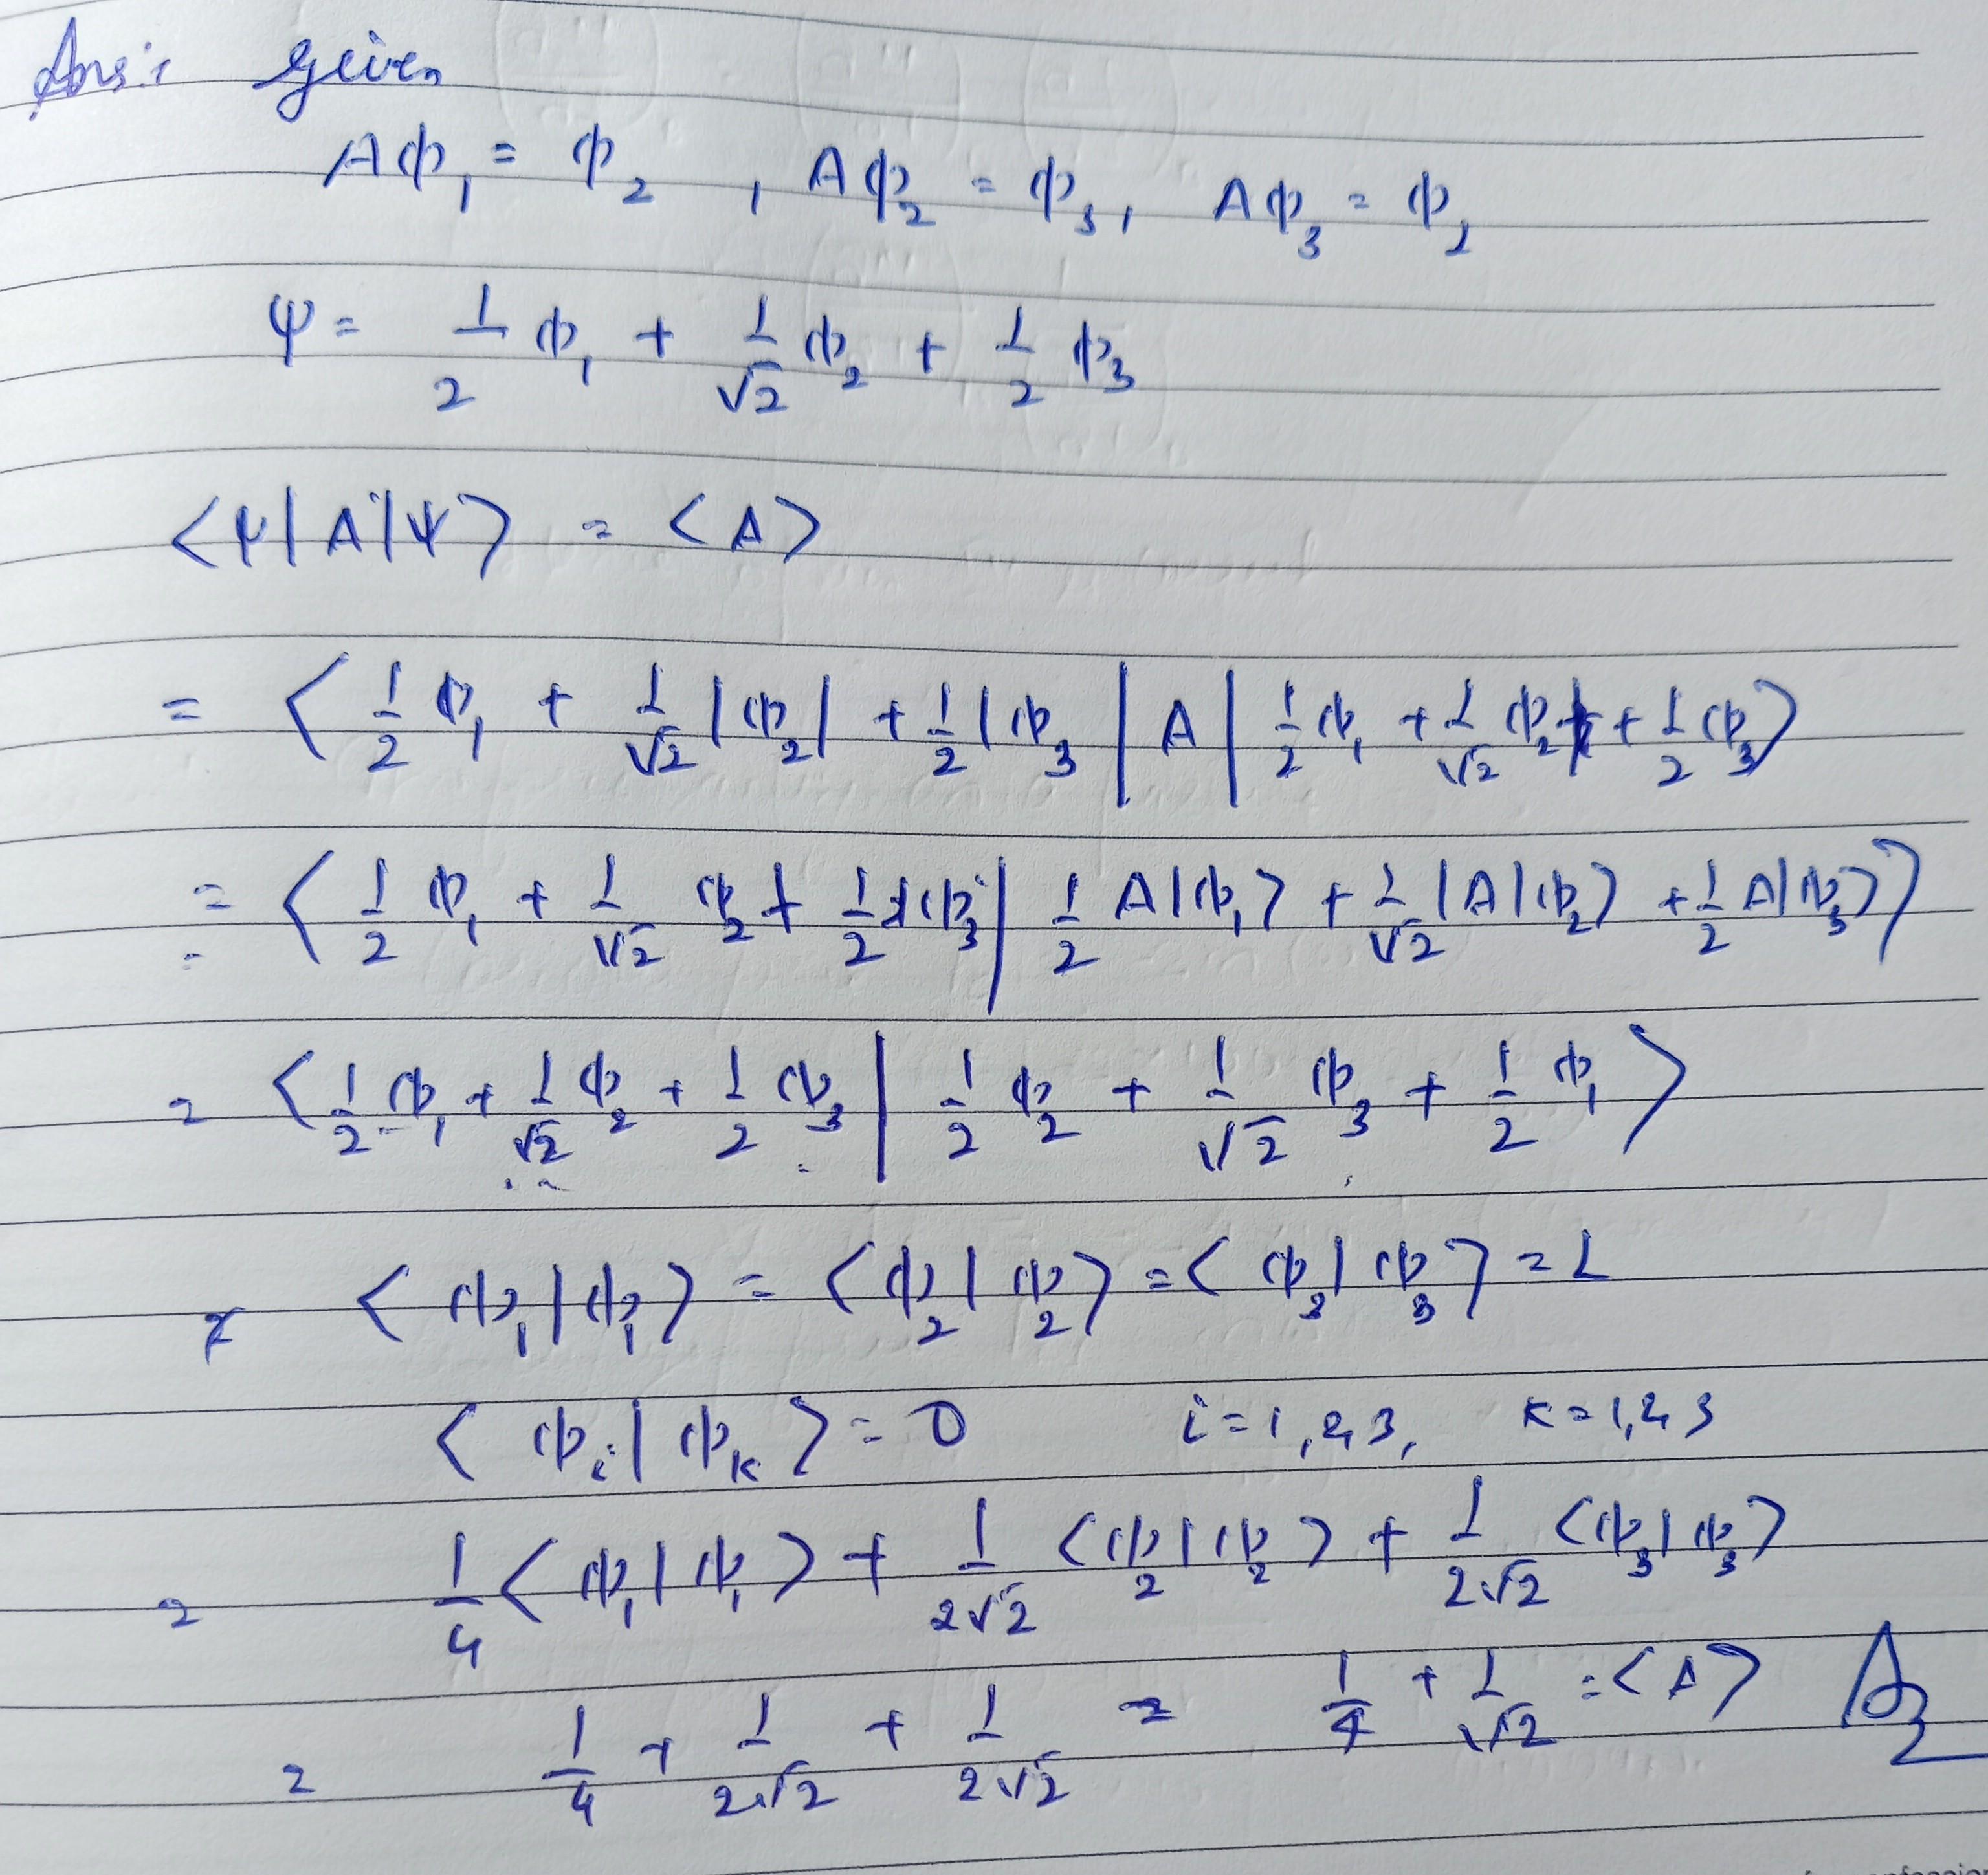 Ans: Given
Aϕ₁ = ϕ₂ , Aϕ₂ = ϕ₃, Aϕ₃ = ϕ₁
ψ = 1/2 ϕ₁ + 1/√2 ϕ₂ + 1/2 ϕ₃
<ψ|A|ψ> = <A>
= <1/2 ϕ₁ + 1/√2 |ϕ₂| + 1/2 |ϕ₃ | A | 1/2 ϕ₁ + 1/√2 ϕ₂ + 1/2 ϕ₃>
= <1/2 ϕ₁ + 1/√2 ϕ₂ + 1/2 ϕ₃ | 1/2 A|ϕ₁> + 1/√2 |A|ϕ₂> + 1/2 A|ϕ₃>>
= <1/2 ϕ₁ + 1/√2 ϕ₂ + 1/2 ϕ₃ | 1/2 ϕ₂ + 1/√2 ϕ₃ + 1/2 ϕ₁>
<ϕ₁|ϕ₁> = <ϕ₂|ϕ₂> = <ϕ₃|ϕ₃> = 1
<ϕᵢ|ϕₖ> = 0 i = 1,2,3, k = 1,2,3
= 1/4 <ϕ₁|ϕ₁> + 1/2√2 <ϕ₂|ϕ₂> + 1/2√2 <ϕ₃|ϕ₃>
= 1/4 + 1/2√2 + 1/2√2 = 1/4 + 1/√2 = <A>